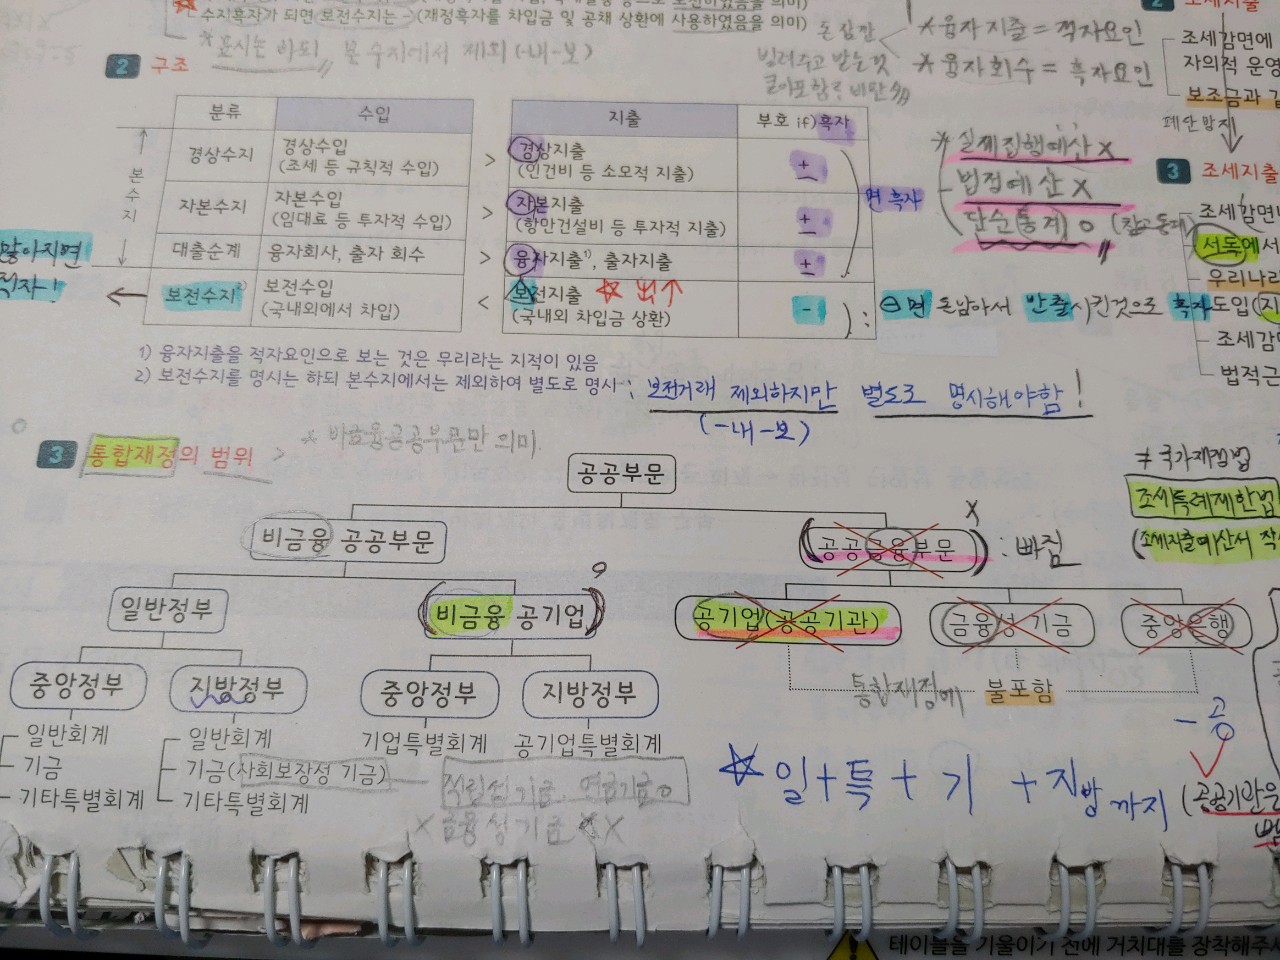 수지흑자가 되면 보전수지는 -(재정흑자를 차입금 및 공채 상환에 사용하였음을 의미)
* 표시는 하되, 본 수지에서 제외 (-내-보)
돈 잠깐
빌려주고 받는것
* 융자지출 = 적자요인
* 융자회수 = 흑자요인
2 구조
분류 수입 지출 부호 if)흑자
본수지
경상수지 경상수입 > 경상지출 +
(조세 등 규칙적 수입) (인건비 등 소모적 지출)
자본수지 자본수입 > 자본지출 +
(임대료 등 투자적 수입) (항만건설비 등 투자적 지출)
대출순계 융자회사, 출자 회수 > 융자지출1), 출자지출 +
보전수지2) 보전수입 < 보전지출 -
(국내외에서 차입) (국내외 차입금 상환)
면 흑자
많아지면
적자!
: ⊖면 돈남아서 반출시킨것으로 흑자
* 실제집행예산 X
법정예산 X
단순(통계) O
1) 융자지출을 적자요인으로 보는 것은 무리라는 지적이 있음
2) 보전수지를 명시는 하되 본수지에서는 제외하여 별도로 명사 : 보전거래 제외하지만 별도로 명시해야함!
(-내-보)
3 통합재정의 범위 > * 비금융공공부문만 의미.
공공부문
비금융 공공부문 (공공금융부문) X : 빠짐
일반정부 (비금융 공기업) 공기업(공공기관) 금융성 기금 중앙은행
중앙정부 지방정부 중앙정부 지방정부 통합재정에 불포함
일반회계 일반회계 기업특별회계 공기업특별회계
기금 기금(사회보장성 기금) 적립성기금, 연금기금 O
기타특별회계 기타특별회계
X 금융성기금 X X
☆ 일 + 특 + 기 + 지방까지
- 공
(공공기관은
2 조세지출
조세감면에
자의적 운영
보조금과
폐단방지
3 조세지출
조세감면
서독에서
우리나라
도입(지
조세감면
법적근
≠ 국가재정법
조세특례제한법
(조세지출예산서 작성
테이블을 기울이기 전에 거치대를 장착해주